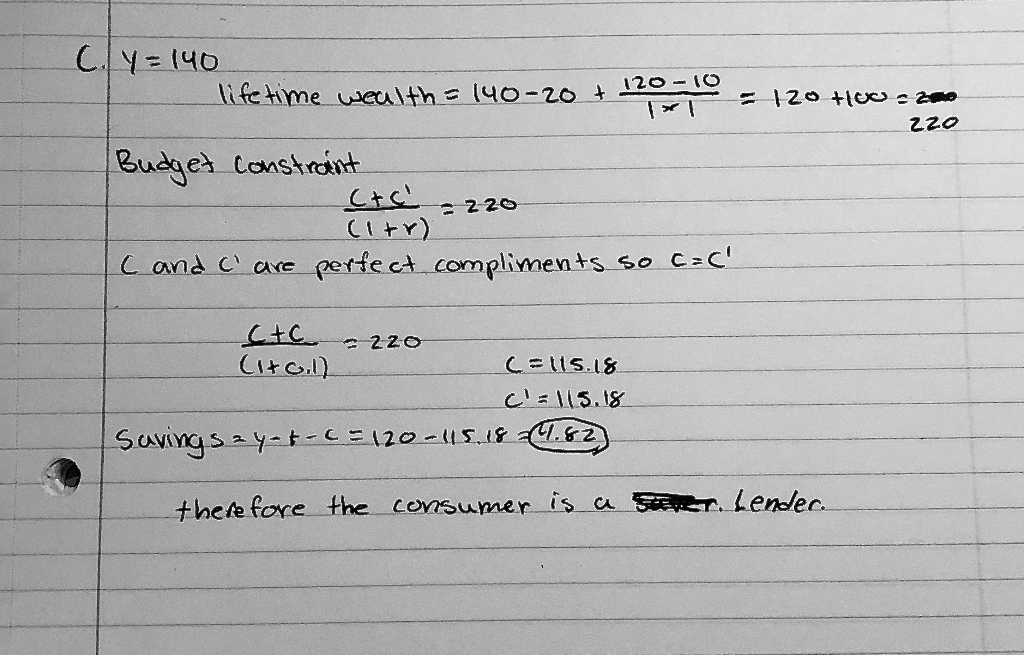 C. y = 140
lifetime wealth = 140 - 20 + (120 - 10)/(1×1) = 120 + 100 =
220
Budget Constraint
(C + C')/(1 + r) = 220
C and C' are perfect compliments so C = C'
(C + C)/(1 + 0.1) = 220
C = 115.18
C' = 115.18
Savings = y - t - c = 120 - 115.18 = 4.82
therefore the consumer is a Lender.